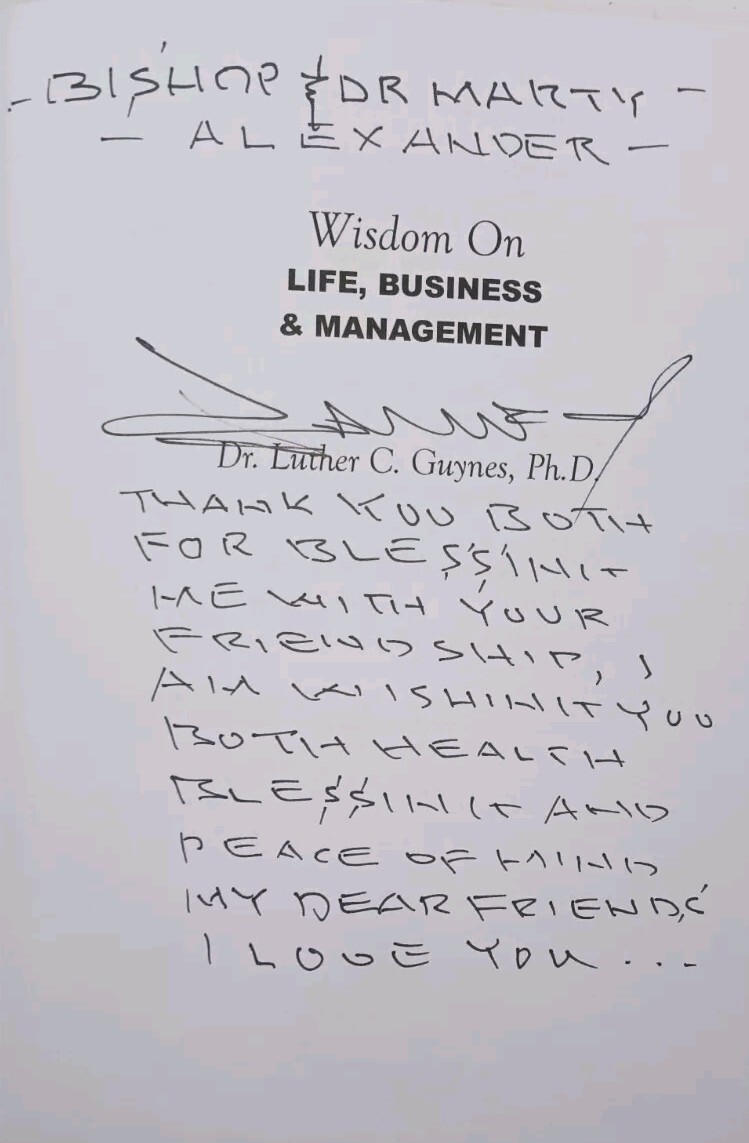 - BISHOP & DR MARTY -
- ALEXANDER -
Wisdom On
LIFE, BUSINESS
& MANAGEMENT
Dr. Luther C. Guynes, Ph.D.
THANK YOU BOTH
FOR BLESSING
ME WITH YOUR
FRIENDSHIP, I
AM WISHING YOU
BOTH HEALTH
BLESSING AND
PEACE OF MIND
MY DEAR FRIENDS
I LOVE YOU ...